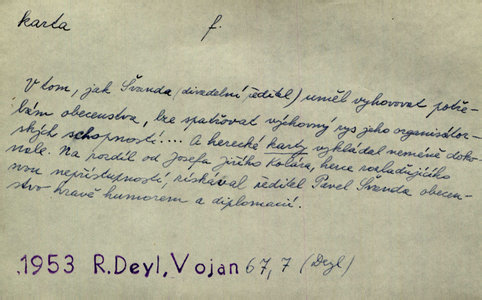 karta f.
V tom, jak Švanda (divadelní ředitel) uměl vyhovovat potře-
bám obecenstva, lze spatřovat výhovný rys jeho organisátor-
ských schopností.... A herecké karty vykládal neméně doko-
nale. Na rozdíl od Josefa Jiřího Kolára, herce rozladujícího
svou nepřístupností, získával ředitel Pavel Švanda obecen-
stvo hravě humorem a diplomacií.
1953 R.Deyl, Vojan 67,7 (Deyl)